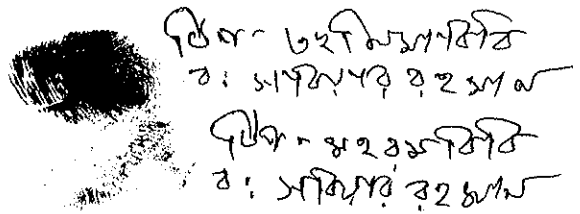 টিপ - তহমিনা বিবি
ব: সাবিয়ার রহমান
টিপ - মহরম বিবি
ব: সাবিয়ার রহমান